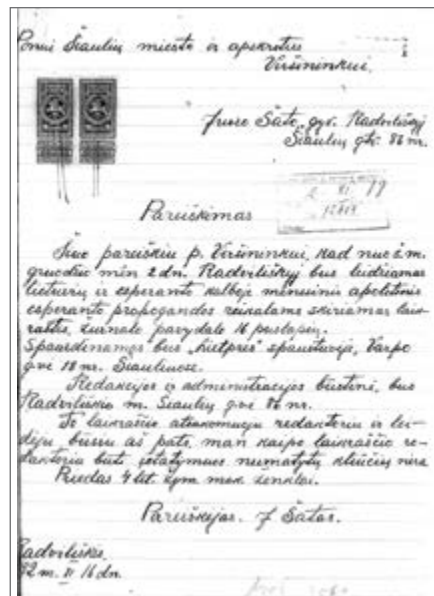 Ponui Šiaulių miesto ir apskrities
Viršininkui.
Juozo Šato, gyv. Radviliškyj
Šiaulių gtv. 86 nr.
Pareiškimas
Šiuo pareiškiu p. Viršininkui, kad nuo š.m.
gruodžio mėn 2 dn. Radviliškyj bus leidžiamas
lietuvių ir esperanto kalboje mėnesinis apolitinis
esperanto propogandos reikalams skiriamas laik-
raštis, žurnalo pavydale 16 puslapių.
Spausdinamas bus „Lietpres" spaustuvėje, Varpo
gvė 18 nr. Šiauliuose.
Redakcijos ir administracijos būstinė, bus
Radviliškio m. Šiaulių gvė 86 nr.
To laikraščio atsakomuoju redaktorium ir lei-
dėju būsiu aš pats, man kaipo laikraščio re-
daktoriu būti įstatymuos numatytų kliučių nėra
Priedas 4 lit. žym mok ženklas.
Pareiškėjas. J Šatas.
Radviliškis,
m. XI 16 dn.